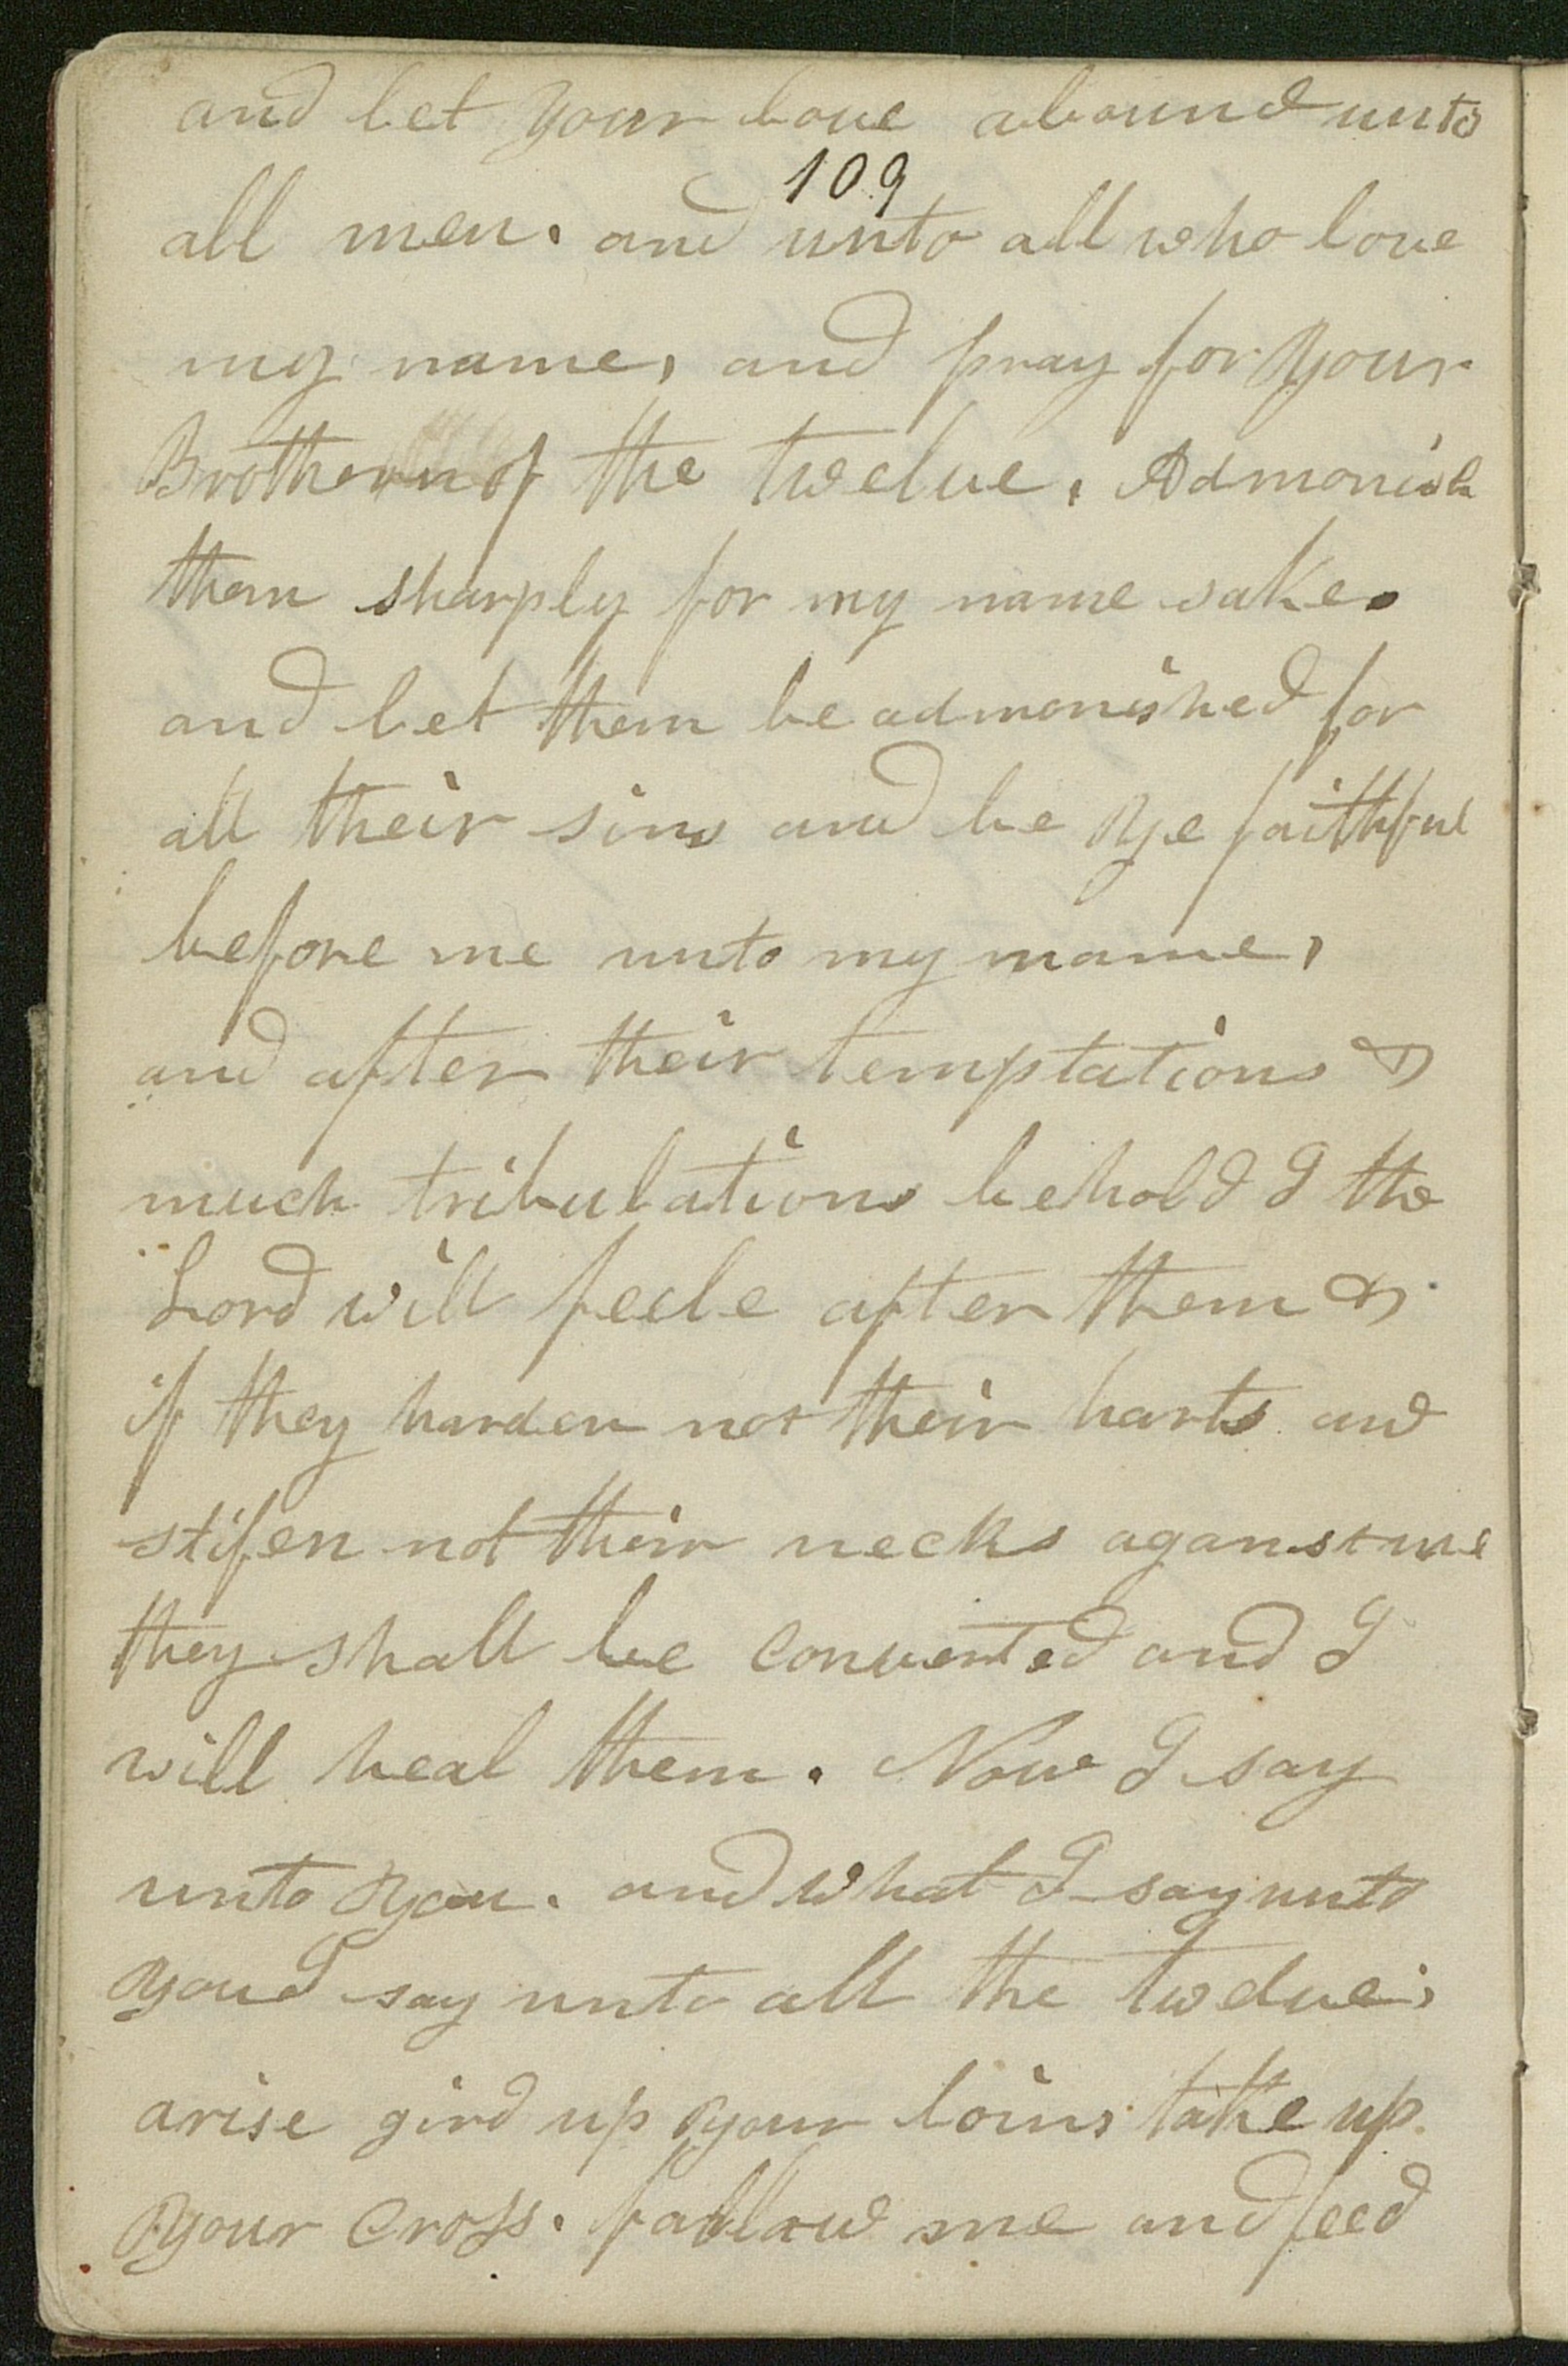 and let your love abound unto
109
all men. and unto all who love
my name, and pray for your
Brothern of the twelve, Admonish
them sharply for my name sake.
and let them be admonished for
all their sins and be ye faithful
before me unto my name,
and after their temptations &
much tribulations behold I the
Lord will feele after them &
if they harden not their harts and
stifen not their necks aganst me
they shall be converted and I
will heal them. Now I say
unto you. and what I say unto
you I say unto all the twelve,
arise gird up your loins take up
your cross. follow me and feed